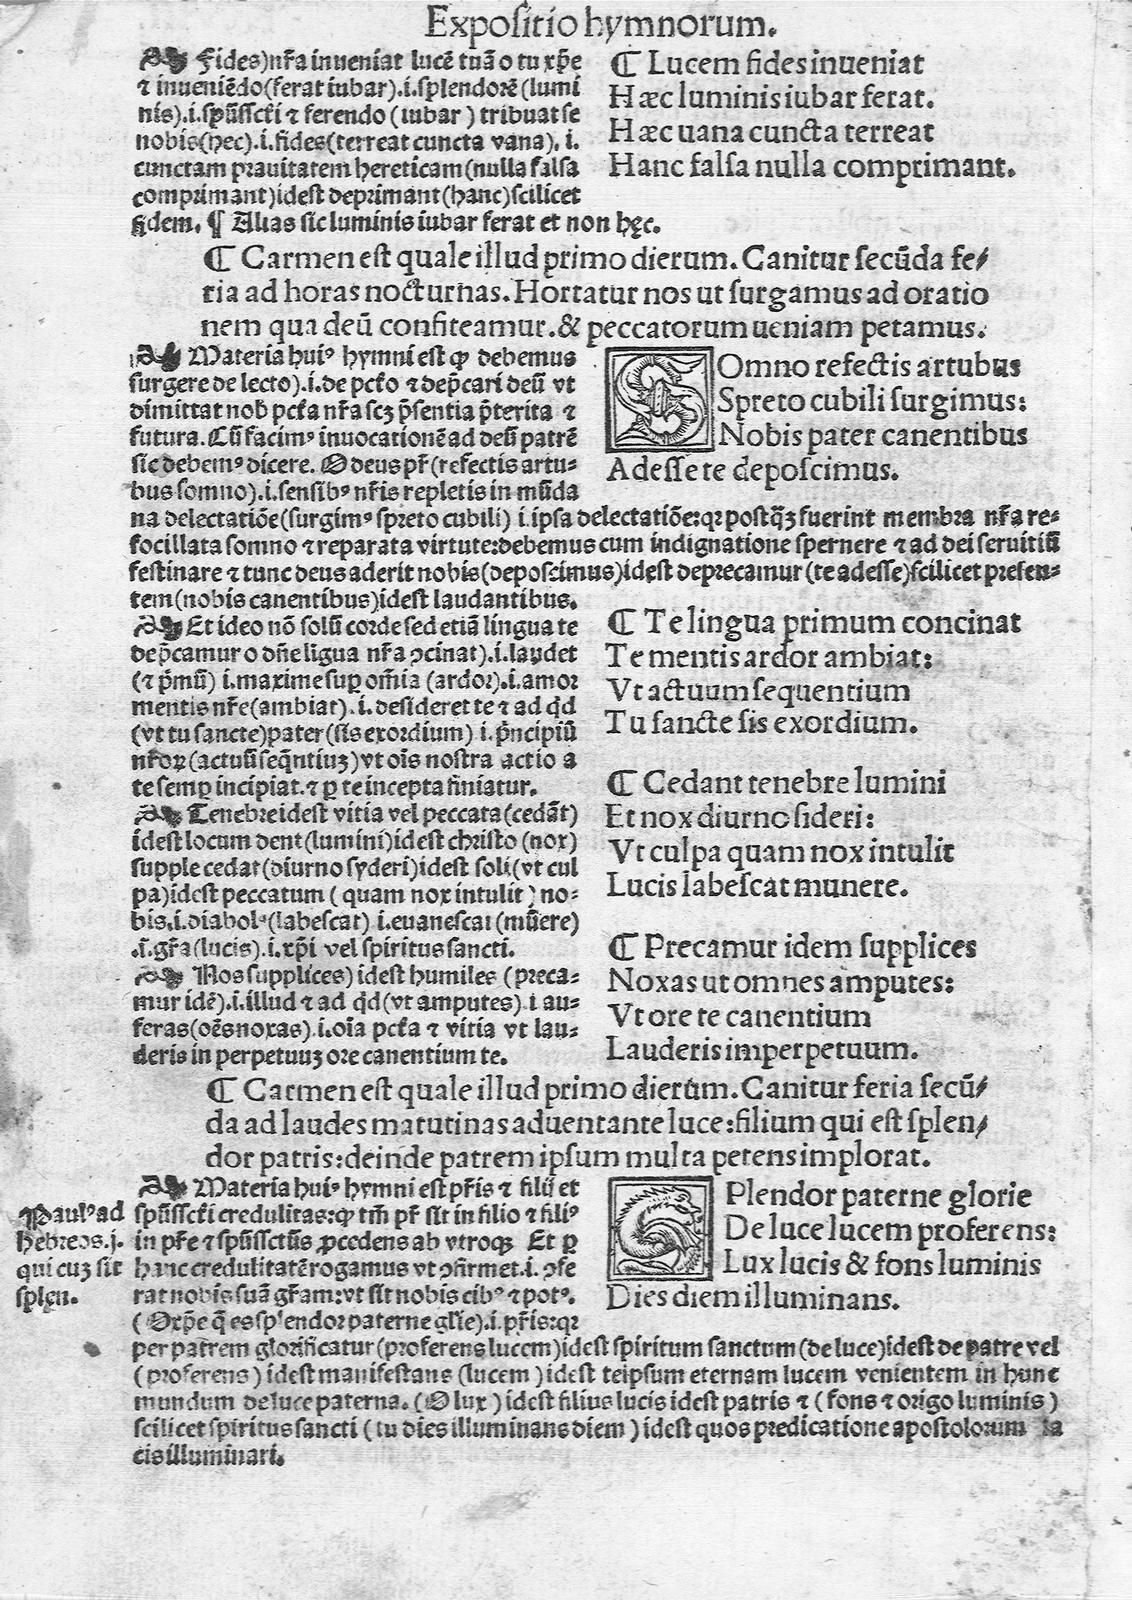 Expoſitio hymnorum.
Fides)nr̃a inueniat lucẽ tuã o tu xp̃e
⁊ inueniẽdo(ferat iubar).i.ſplendorẽ(lumi
nis).i.ſpũſſcti ⁊ ferendo (iubar) tribuat ſe
nobis(hec).i.fides(terreat cuncta vana), i.
cunctam prauitatem hereticam(nulla falſa
comprimant)ideſt deprimant(hanc)ſcilicet
fidem. ¶ Alias ſic luminis iubar ferat et non hęc.
¶ Lucem fides inueniat
Hæc luminis iubar ferat.
Hæc uana cuncta terreat
Hanc falſa nulla comprimant.
¶ Carmen eſt quale illud primo dierum. Canitur ſecũda fe/
ria ad horas nocturnas. Hortatur nos ut ſurgamus ad oratio
nem qua deũ confiteamur. & peccatorum ueniam petamus.
Materia huiꝰ hymni eſt ꝙ debemus
ſurgere de lecto).i.de pctõ ⁊ dep̃cari deũ vt
dimittat nob pctã nr̃a ſcꝫ p̃ſentia p̃terita ⁊
futura. Cũ facimꝰ inuocationẽ ad deũ patrẽ
ſic debemꝰ dicere. O deus pr̃(refectis artu-
bus ſomno).i.ſenſibꝰ nr̃is repletis in mũda
na delectatiõe(ſurgimꝰ ſpreto cubili) i.ipſa delectatiõe:qꝛ poſtꝗ̃ꝫ fuerint membra nr̃a re-
focillata ſomno ⁊ reparata virtute:debemus cum indignatione ſpernere ⁊ ad dei ſeruitiũ
feſtinare ⁊ tunc deus aderit nobis(depoſcimus)ideſt deprecamur (te adeſſe)ſcilicet preſen-
tem(nobis canentibus)ideſt laudantibus.
SOmno refectis artubus
Spreto cubili ſurgimus:
Nobis pater canentibus
Adeſſe te depoſcimus.
Et ideo nõ ſolũ corde ſed etiã lingua te
dep̃camur o dñe lĩgua nr̃a ↄcinat).i.laudet
(⁊ p̃mũ) i.maxime ſuꝑ om̃ia (ardor).i.amor
mentis nr̃e(ambiat).i.deſideret te ⁊ ad qd̃
(vt tu ſancte)pater(ſis exordium) i.p̃ncipiũ
nr̃oꝝ(actuũ ſeq̃ntiuꝫ)vt oĩs noſtra actio a
te ſemꝑ incipiat.⁊ ꝑ te incepta finiatur.
¶ Te lingua primum concinat
Te mentis ardor ambiat:
Vt actuum ſequentium
Tu ſancte ſis exordium.
Tenebre ideſt vitia vel peccata(cedãt)
ideſt locum dent(lumini)ideſt chriſto (nox)
ſupple cedat(diurno ſyderi)ideſt ſoli(vt cul
pa)ideſt peccatum (quam nox intulit) no-
bis.i.diabolꝰ(labeſcat) i.euaneſcat (mũere)
.i.gr̃a(lucis).i.xp̃i vel ſpiritus ſancti.
¶ Cedant tenebre lumini
Et nox diurno ſideri:
Vt culpa quam nox intulit
Lucis labeſcat munere.
Nos ſupplices) ideſt humiles (preca-
mur idẽ).i.illud ⁊ ad qd̃(vt amputes).i au-
feras(oẽs noxas).i.oĩa pctã ⁊ vitia vt lau-
deris in perpetuuꝫ ore canentium te.
¶ Precamur idem ſupplices
Noxas ut omnes amputes:
Vt ore te canentium
Lauderis imperpetuum.
¶ Carmen eſt quale illud primo dierum. Canitur feria ſecũ/
da ad laudes matutinas aduentante luce:filium qui eſt ſplen/
dor patris:deinde patrem ipſum multa petens implorat.
Materia huiꝰ hymni eſt pr̃is ⁊ filij et
ſpũſſcti credulitas:ꝙ tm̃ pr̃ ſit in filio ⁊ filiꝰ
in pr̃e ⁊ ſpũſſctũs ꝓcedens ab vtroqꝫ Et ꝑ
hanc credulitatẽ rogamus vt ↄfirmet.i. ↄfe
rat nobis ſuã gr̃am:vt ſit nobis cibꝰ ⁊ potꝰ.
(O xp̃e q̃ es ſplendor paterne gl̃ie).i.pr̃is:qꝛ
per patrem glorificatur(proferens lucem)ideſt ſpiritum ſanctum (de luce)ideſt de patre vel
(proferens) ideſt manifeſtans (lucem) ideſt teipſum eternam lucem venientem in hunc
mundum de luce paterna. (O lux) ideſt filius lucis ideſt patris ⁊ (fons ⁊ origo luminis)
ſcilicet ſpiritus ſancti (tu dies illuminans diem) ideſt quos predicatione apoſtolorum fa
cis illuminari.
Paulꝰ ad
hebreos.j.
qui cuꝫ ſit
ſplen.
SPlendor paterne glorie
De luce lucem proferens:
Lux lucis & fons luminis
Dies diem illuminans.